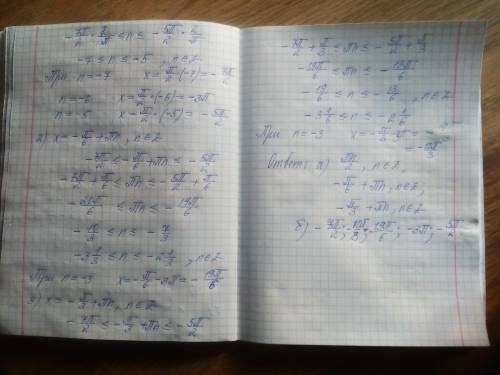 -7π/2 · 2/π ≤ n ≤ -5π/2 · 2/π
-7 ≤ n ≤ -5, n∈Z
При n=-7 x = π/2·(-7) = -7π/2
n=-6 x = π/2·(-6) = -3π
n=-5 x = π/2·(-5) = -5π/2
2) x = -π/6 + πn, n∈Z
-7π/2 ≤ -π/6 + πn ≤ -5π/2
-7π/2 + π/6 ≤ πn ≤ -5π/2 + π/6
≤ πn ≤ -14π/6
-10/3 ≤ n ≤ -7/3
-3 1/3 ≤ n ≤ -2 1/3, n∈Z
При n=-3 x = -π/6 - 3π = -19π/6
3) x = -π/3 + πn, n∈Z
-7π/2 ≤ -π/3 + πn ≤ -5π/2
-7π/2 + π/3 ≤ πn ≤ -5π/2 + π/3
-19π/6 ≤ πn ≤ -13π/6
-19/6 ≤ n ≤ -13/6, n∈Z
-3 1/6 ≤ n ≤ -2 1/6
При n=-3 x = -π/3 - 3π =
= -10π/3
Ответ: а) πn/2, n∈Z,
-π/6 + πn, n∈Z,
-π/3 + πn, n∈Z
б) -7π/2; -10π/3; -19π/6; -3π; -5π/2